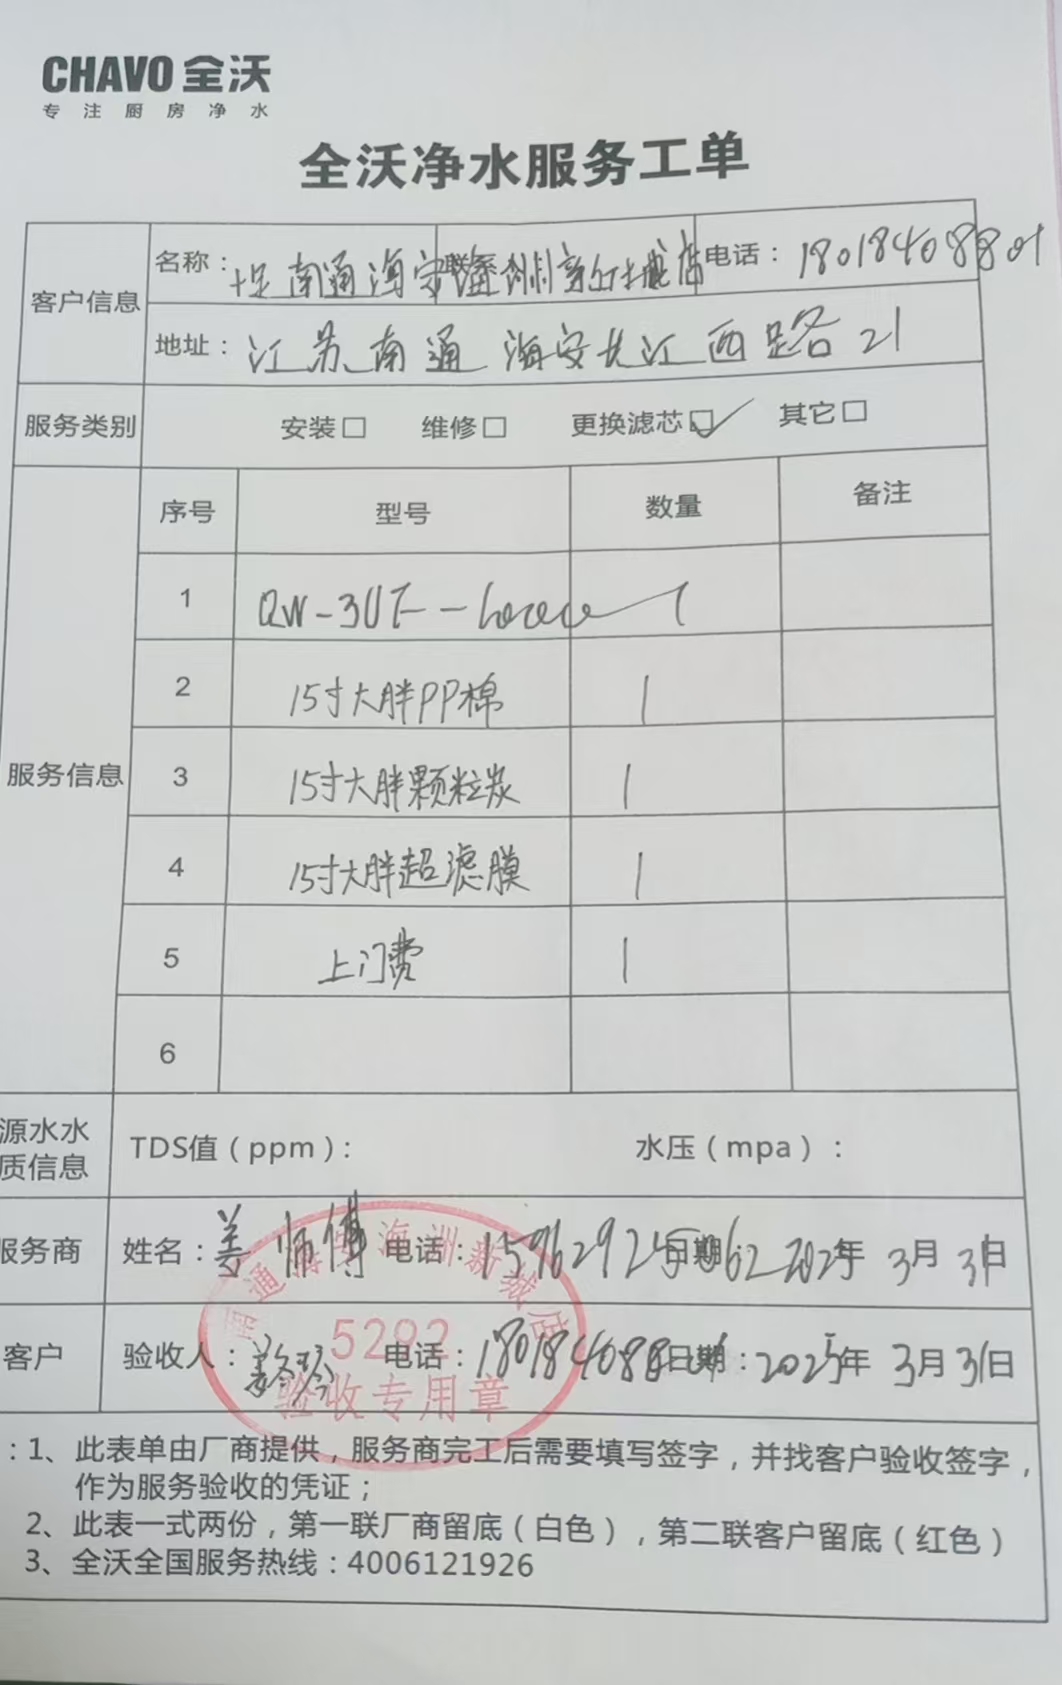 CHAVO 全沃
专注厨房净水
全沃净水服务工单
客户信息
名称： 南通海安海洲新城店 电话：18018408801
地址：江苏南通海安长江西路21
服务类别 安装□ 维修□ 更换滤芯☑ 其它□
服务信息
序号 型号 数量 备注
1 QW-3UF- 1
2 15寸大胖PP棉 1
3 15寸大胖颗粒炭 1
4 15寸大胖超滤膜 1
5 上门费 1
6
源水水质信息 TDS值（ppm）： 水压（mpa）：
服务商 姓名：姜师傅 电话：15962925 62 日期 2025年3月31日
客户 验收人： 电话：18018408801 日期：2025年3月31日
南通海安海洲新城店
5292
验收专用章
：1、此表单由厂商提供，服务商完工后需要填写签字，并找客户验收签字，
作为服务验收的凭证；
2、此表一式两份，第一联厂商留底（白色），第二联客户留底（红色）
3、全沃全国服务热线：4006121926